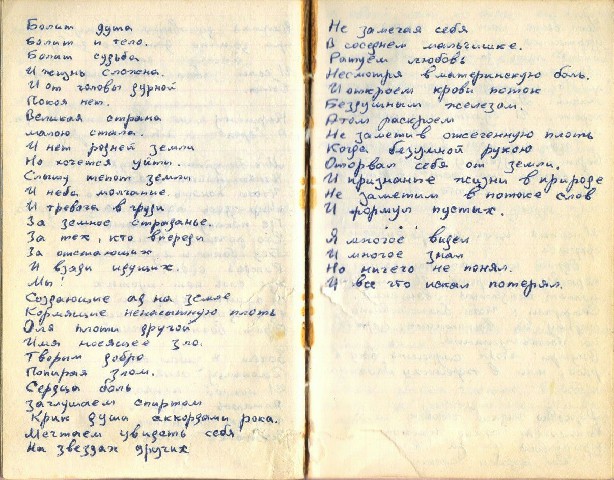 Болит душа
Болит и тело.
Болит судьба
И жизнь сложна.
И от головы дурной
Покоя нет.
Великая страна
малою стала.
И нет родней земли
Но хочется уйти.
Слышу шепот земли
И неба молчанье.
И тревога в груди
За земное страданье.
За тех, кто впереди
За отстающих
И взади идущих.
Мы!
Создающие ад на земле
Кормящие ненасытную плоть
Для плоти другой
Имя носящее зло.
Творим добро
Попирая злом.
Сердца боль
Заглушаем спиртом
Крик души аккордами рока.
Мечтаем увидеть себя
На звездах других
Не замечая себя
В соседнем мальчишке.
Ратуем любовь
Несмотря в материнскую боль.
И откроем крови поток
Бездушным железом.
Атом раскроем
Не заметив отсеченную плоть
Когда безумной рукою
Оторвал себя от земли.
И признанье жизни в природе
Не заметим в потоке слов
И формул пустых.
. . .
Я многое видел
И многое знал
Но ничего не понял.
И все что искал потерял.